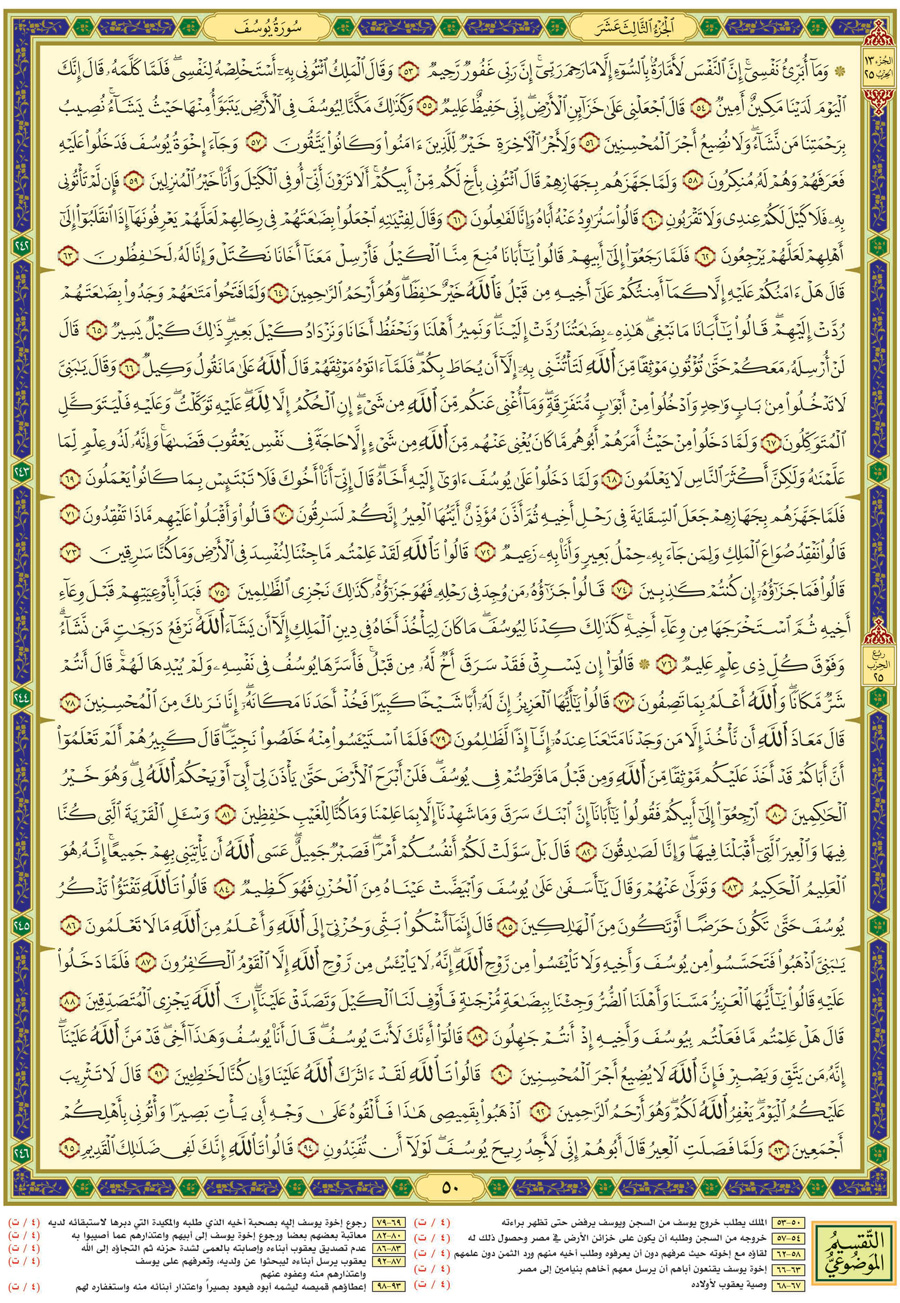 الجُزْءُ الثَّالِثَ عَشَرَ
سُورَةُ يُوسُفَ
الجُزء ١٣
الحِزب ٢٥
۞ وَمَآ أُبَرِّئُ نَفْسِيٓۚ إِنَّ ٱلنَّفْسَ لَأَمَّارَةُۢ بِٱلسُّوٓءِ إِلَّا مَا رَحِمَ رَبِّيٓۚ إِنَّ رَبِّي غَفُورٞ رَّحِيمٞ ٥٣ وَقَالَ ٱلْمَلِكُ ٱئْتُونِي بِهِۦٓ أَسْتَخْلِصْهُ لِنَفْسِيۖ فَلَمَّا كَلَّمَهُۥ قَالَ إِنَّكَ
ٱلْيَوْمَ لَدَيْنَا مَكِينٌ أَمِينٞ ٥٤ قَالَ ٱجْعَلْنِي عَلَىٰ خَزَآئِنِ ٱلْأَرْضِۖ إِنِّي حَفِيظٌ عَلِيمٞ ٥٥ وَكَذَٰلِكَ مَكَّنَّا لِيُوسُفَ فِي ٱلْأَرْضِ يَتَبَوَّأُ مِنْهَا حَيْثُ يَشَآءُۚ نُصِيبُ
بِرَحْمَتِنَا مَن نَّشَآءُۖ وَلَا نُضِيعُ أَجْرَ ٱلْمُحْسِنِينَ ٥٦ وَلَأَجْرُ ٱلْأٓخِرَةِ خَيْرٞ لِّلَّذِينَ ءَامَنُواْ وَكَانُواْ يَتَّقُونَ ٥٧ وَجَآءَ إِخْوَةُ يُوسُفَ فَدَخَلُواْ عَلَيْهِ
فَعَرَفَهُمْ وَهُمْ لَهُۥ مُنكِرُونَ ٥٨ وَلَمَّا جَهَّزَهُم بِجَهَازِهِمْ قَالَ ٱئْتُونِي بِأَخٖ لَّكُم مِّنْ أَبِيكُمْۚ أَلَا تَرَوْنَ أَنِّيٓ أُوفِي ٱلْكَيْلَ وَأَنَا۠ خَيْرُ ٱلْمُنزِلِينَ ٥٩ فَإِن لَّمْ تَأْتُونِي
بِهِۦ فَلَا كَيْلَ لَكُمْ عِندِي وَلَا تَقْرَبُونِ ٦٠ قَالُواْ سَنُرَٰوِدُ عَنْهُ أَبَاهُ وَإِنَّا لَفَٰعِلُونَ ٦١ وَقَالَ لِفِتْيَٰنِهِ ٱجْعَلُواْ بِضَٰعَتَهُمْ فِي رِحَالِهِمْ لَعَلَّهُمْ يَعْرِفُونَهَآ إِذَا ٱنقَلَبُوٓاْ إِلَىٰٓ
أَهْلِهِمْ لَعَلَّهُمْ يَرْجِعُونَ ٦٢ فَلَمَّا رَجَعُوٓاْ إِلَىٰٓ أَبِيهِمْ قَالُواْ يَٰٓأَبَانَا مُنِعَ مِنَّا ٱلْكَيْلُ فَأَرْسِلْ مَعَنَآ أَخَانَا نَكْتَلْ وَإِنَّا لَهُۥ لَحَٰفِظُونَ ٦٣
٢٤٢
قَالَ هَلْ ءَامَنُكُمْ عَلَيْهِ إِلَّا كَمَآ أَمِنتُكُمْ عَلَىٰٓ أَخِيهِ مِن قَبْلُ فَٱللَّهُ خَيْرٌ حَٰفِظٗاۖ وَهُوَ أَرْحَمُ ٱلرَّٰحِمِينَ ٦٤ وَلَمَّا فَتَحُواْ مَتَٰعَهُمْ وَجَدُواْ بِضَٰعَتَهُمْ
رُدَّتْ إِلَيْهِمْۖ قَالُواْ يَٰٓأَبَانَا مَا نَبْغِيۖ هَٰذِهِۦ بِضَٰعَتُنَا رُدَّتْ إِلَيْنَاۖ وَنَمِيرُ أَهْلَنَا وَنَحْفَظُ أَخَانَا وَنَزْدَادُ كَيْلَ بَعِيرٖۖ ذَٰلِكَ كَيْلٞ يَسِيرٞ ٦٥ قَالَ
لَنْ أُرْسِلَهُۥ مَعَكُمْ حَتَّىٰ تُؤْتُونِ مَوْثِقٗا مِّنَ ٱللَّهِ لَتَأْتُنَّنِي بِهِۦٓ إِلَّآ أَن يُحَاطَ بِكُمْۖ فَلَمَّآ ءَاتَوْهُ مَوْثِقَهُمْ قَالَ ٱللَّهُ عَلَىٰ مَا نَقُولُ وَكِيلٞ ٦٦ وَقَالَ يَٰبَنِيَّ
لَا تَدْخُلُواْ مِنۢ بَابٖ وَٰحِدٖ وَٱدْخُلُواْ مِنْ أَبْوَٰبٖ مُّتَفَرِّقَةٖۖ وَمَآ أُغْنِي عَنكُم مِّنَ ٱللَّهِ مِن شَيْءٍۖ إِنِ ٱلْحُكْمُ إِلَّا لِلَّهِۖ عَلَيْهِ تَوَكَّلْتُۖ وَعَلَيْهِ فَلْيَتَوَكَّلِ
ٱلْمُتَوَكِّلُونَ ٦٧ وَلَمَّا دَخَلُواْ مِنْ حَيْثُ أَمَرَهُمْ أَبُوهُم مَّا كَانَ يُغْنِي عَنْهُم مِّنَ ٱللَّهِ مِن شَيْءٍ إِلَّا حَاجَةٗ فِي نَفْسِ يَعْقُوبَ قَضَىٰهَاۚ وَإِنَّهُۥ لَذُو عِلْمٖ لِّمَا
عَلَّمْنَٰهُ وَلَٰكِنَّ أَكْثَرَ ٱلنَّاسِ لَا يَعْلَمُونَ ٦٨ وَلَمَّا دَخَلُواْ عَلَىٰ يُوسُفَ ءَاوَىٰٓ إِلَيْهِ أَخَاهُۖ قَالَ إِنِّيٓ أَنَا۠ أَخُوكَ فَلَا تَبْتَئِسْ بِمَا كَانُواْ يَعْمَلُونَ ٦٩
٢٤٣
فَلَمَّا جَهَّزَهُم بِجَهَازِهِمْ جَعَلَ ٱلسِّقَايَةَ فِي رَحْلِ أَخِيهِ ثُمَّ أَذَّنَ مُؤَذِّنٌ أَيَّتُهَا ٱلْعِيرُ إِنَّكُمْ لَسَٰرِقُونَ ٧٠ قَالُواْ وَأَقْبَلُواْ عَلَيْهِم مَّاذَا تَفْقِدُونَ ٧١
قَالُواْ نَفْقِدُ صُوَاعَ ٱلْمَلِكِ وَلِمَن جَآءَ بِهِۦ حِمْلُ بَعِيرٖ وَأَنَا۠ بِهِۦ زَعِيمٞ ٧٢ قَالُواْ تَٱللَّهِ لَقَدْ عَلِمْتُم مَّا جِئْنَا لِنُفْسِدَ فِي ٱلْأَرْضِ وَمَا كُنَّا سَٰرِقِينَ ٧٣
قَالُواْ فَمَا جَزَٰٓؤُهُۥٓ إِن كُنتُمْ كَٰذِبِينَ ٧٤ قَالُواْ جَزَٰٓؤُهُۥ مَن وُجِدَ فِي رَحْلِهِۦ فَهُوَ جَزَٰٓؤُهُۥۚ كَذَٰلِكَ نَجْزِي ٱلظَّٰلِمِينَ ٧٥ فَبَدَأَ بِأَوْعِيَتِهِمْ قَبْلَ وِعَآءِ
أَخِيهِ ثُمَّ ٱسْتَخْرَجَهَا مِن وِعَآءِ أَخِيهِۚ كَذَٰلِكَ كِدْنَا لِيُوسُفَۖ مَا كَانَ لِيَأْخُذَ أَخَاهُ فِي دِينِ ٱلْمَلِكِ إِلَّآ أَن يَشَآءَ ٱللَّهُۚ نَرْفَعُ دَرَجَٰتٖ مَّن نَّشَآءُۗ
وَفَوْقَ كُلِّ ذِي عِلْمٍ عَلِيمٞ ٧٦ ۞ قَالُوٓاْ إِن يَسْرِقْ فَقَدْ سَرَقَ أَخٞ لَّهُۥ مِن قَبْلُۚ فَأَسَرَّهَا يُوسُفُ فِي نَفْسِهِۦ وَلَمْ يُبْدِهَا لَهُمْۚ قَالَ أَنتُمْ
رُبع
الحِزب
٢٥
شَرّٞ مَّكَانٗاۖ وَٱللَّهُ أَعْلَمُ بِمَا تَصِفُونَ ٧٧ قَالُواْ يَٰٓأَيُّهَا ٱلْعَزِيزُ إِنَّ لَهُۥٓ أَبٗا شَيْخٗا كَبِيرٗا فَخُذْ أَحَدَنَا مَكَانَهُۥٓۖ إِنَّا نَرَىٰكَ مِنَ ٱلْمُحْسِنِينَ ٧٨
٢٤٤
قَالَ مَعَاذَ ٱللَّهِ أَن نَّأْخُذَ إِلَّا مَن وَجَدْنَا مَتَٰعَنَا عِندَهُۥٓ إِنَّآ إِذٗا لَّظَٰلِمُونَ ٧٩ فَلَمَّا ٱسْتَيْـَٔسُواْ مِنْهُ خَلَصُواْ نَجِيّٗاۖ قَالَ كَبِيرُهُمْ أَلَمْ تَعْلَمُوٓاْ
أَنَّ أَبَاكُمْ قَدْ أَخَذَ عَلَيْكُم مَّوْثِقٗا مِّنَ ٱللَّهِ وَمِن قَبْلُ مَا فَرَّطتُمْ فِي يُوسُفَۖ فَلَنْ أَبْرَحَ ٱلْأَرْضَ حَتَّىٰ يَأْذَنَ لِيٓ أَبِيٓ أَوْ يَحْكُمَ ٱللَّهُ لِيۖ وَهُوَ خَيْرُ
ٱلْحَٰكِمِينَ ٨٠ ٱرْجِعُوٓاْ إِلَىٰٓ أَبِيكُمْ فَقُولُواْ يَٰٓأَبَانَآ إِنَّ ٱبْنَكَ سَرَقَ وَمَا شَهِدْنَآ إِلَّا بِمَا عَلِمْنَا وَمَا كُنَّا لِلْغَيْبِ حَٰفِظِينَ ٨١ وَسْـَٔلِ ٱلْقَرْيَةَ ٱلَّتِي كُنَّا
فِيهَا وَٱلْعِيرَ ٱلَّتِيٓ أَقْبَلْنَا فِيهَاۖ وَإِنَّا لَصَٰدِقُونَ ٨٢ قَالَ بَلْ سَوَّلَتْ لَكُمْ أَنفُسُكُمْ أَمْرٗاۖ فَصَبْرٞ جَمِيلٌۖ عَسَى ٱللَّهُ أَن يَأْتِيَنِي بِهِمْ جَمِيعًاۚ إِنَّهُۥ هُوَ
ٱلْعَلِيمُ ٱلْحَكِيمُ ٨٣ وَتَوَلَّىٰ عَنْهُمْ وَقَالَ يَٰٓأَسَفَىٰ عَلَىٰ يُوسُفَ وَٱبْيَضَّتْ عَيْنَاهُ مِنَ ٱلْحُزْنِ فَهُوَ كَظِيمٞ ٨٤ قَالُواْ تَٱللَّهِ تَفْتَؤُاْ تَذْكُرُ
يُوسُفَ حَتَّىٰ تَكُونَ حَرَضًا أَوْ تَكُونَ مِنَ ٱلْهَٰلِكِينَ ٨٥ قَالَ إِنَّمَآ أَشْكُواْ بَثِّي وَحُزْنِيٓ إِلَى ٱللَّهِ وَأَعْلَمُ مِنَ ٱللَّهِ مَا لَا تَعْلَمُونَ ٨٦
٢٤٥
يَٰبَنِيَّ ٱذْهَبُواْ فَتَحَسَّسُواْ مِن يُوسُفَ وَأَخِيهِ وَلَا تَاْيْـَٔسُواْ مِن رَّوْحِ ٱللَّهِۖ إِنَّهُۥ لَا يَاْيْـَٔسُ مِن رَّوْحِ ٱللَّهِ إِلَّا ٱلْقَوْمُ ٱلْكَٰفِرُونَ ٨٧ فَلَمَّا دَخَلُواْ
عَلَيْهِ قَالُواْ يَٰٓأَيُّهَا ٱلْعَزِيزُ مَسَّنَا وَأَهْلَنَا ٱلضُّرُّ وَجِئْنَا بِبِضَٰعَةٖ مُّزْجَىٰةٖ فَأَوْفِ لَنَا ٱلْكَيْلَ وَتَصَدَّقْ عَلَيْنَآۖ إِنَّ ٱللَّهَ يَجْزِي ٱلْمُتَصَدِّقِينَ ٨٨
قَالَ هَلْ عَلِمْتُم مَّا فَعَلْتُم بِيُوسُفَ وَأَخِيهِ إِذْ أَنتُمْ جَٰهِلُونَ ٨٩ قَالُوٓاْ أَءِنَّكَ لَأَنتَ يُوسُفُۖ قَالَ أَنَا۠ يُوسُفُ وَهَٰذَآ أَخِيۖ قَدْ مَنَّ ٱللَّهُ عَلَيْنَآۖ
إِنَّهُۥ مَن يَتَّقِ وَيَصْبِرْ فَإِنَّ ٱللَّهَ لَا يُضِيعُ أَجْرَ ٱلْمُحْسِنِينَ ٩٠ قَالُواْ تَٱللَّهِ لَقَدْ ءَاثَرَكَ ٱللَّهُ عَلَيْنَا وَإِن كُنَّا لَخَٰطِـِٔينَ ٩١ قَالَ لَا تَثْرِيبَ
عَلَيْكُمُ ٱلْيَوْمَۖ يَغْفِرُ ٱللَّهُ لَكُمْۖ وَهُوَ أَرْحَمُ ٱلرَّٰحِمِينَ ٩٢ ٱذْهَبُواْ بِقَمِيصِي هَٰذَا فَأَلْقُوهُ عَلَىٰ وَجْهِ أَبِي يَأْتِ بَصِيرٗا وَأْتُونِي بِأَهْلِكُمْ
أَجْمَعِينَ ٩٣ وَلَمَّا فَصَلَتِ ٱلْعِيرُ قَالَ أَبُوهُمْ إِنِّي لَأَجِدُ رِيحَ يُوسُفَۖ لَوْلَآ أَن تُفَنِّدُونِ ٩٤ قَالُواْ تَٱللَّهِ إِنَّكَ لَفِي ضَلَٰلِكَ ٱلْقَدِيمِ ٩٥
٢٤٦
٥٠
التَّقسِيمُ
المَوضُوعِيُّ
٥٠-٥٣ الملك يطلب خروج يوسف من السجن ويوسف يرفض حتى تظهر براءته (٤ / ت)
٥٤-٥٧ خروجه من السجن وطلبه أن يكون على خزائن الأرض في مصر وحصول ذلك له (٤ / ت)
٥٨-٦٢ لقاؤه مع إخوته حيث عرفهم دون أن يعرفوه وطلب أخيه منهم ورد الثمن دون علمهم (٤ / ت)
٦٣-٦٦ إخوة يوسف يقنعون أباهم أن يرسل معهم أخاهم بنيامين إلى مصر (٤ / ت)
٦٧-٦٨ وصية يعقوب لأولاده (٤ / ت)
٦٩-٧٩ رجوع إخوة يوسف إليه بصحبة أخيه الذي طلبه والمكيدة التي دبرها لاستبقائه لديه (٤ / ت)
٨٠-٨٢ معاتبة بعضهم بعضا ورجوع إخوة يوسف إلى أبيهم واعتذارهم عما أصيبوا به (٤ / ت)
٨٣-٨٦ عدم تصديق يعقوب أبناءه وإصابته بالعمى لشدة حزنه ثم التجاؤه إلى الله (٤ / ت)
٨٧-٩٢ يعقوب يرسل أبناءه ليبحثوا عن ولديه، وتعرفهم على يوسف (٤ / ت)
واعتذارهم منه وعفوه عنهم
٩٣-٩٨ إعطاؤهم قميصه ليشمه أبوه فيعود بصيراً واعتذار أبنائه منه واستغفاره لهم (٤ / ت)